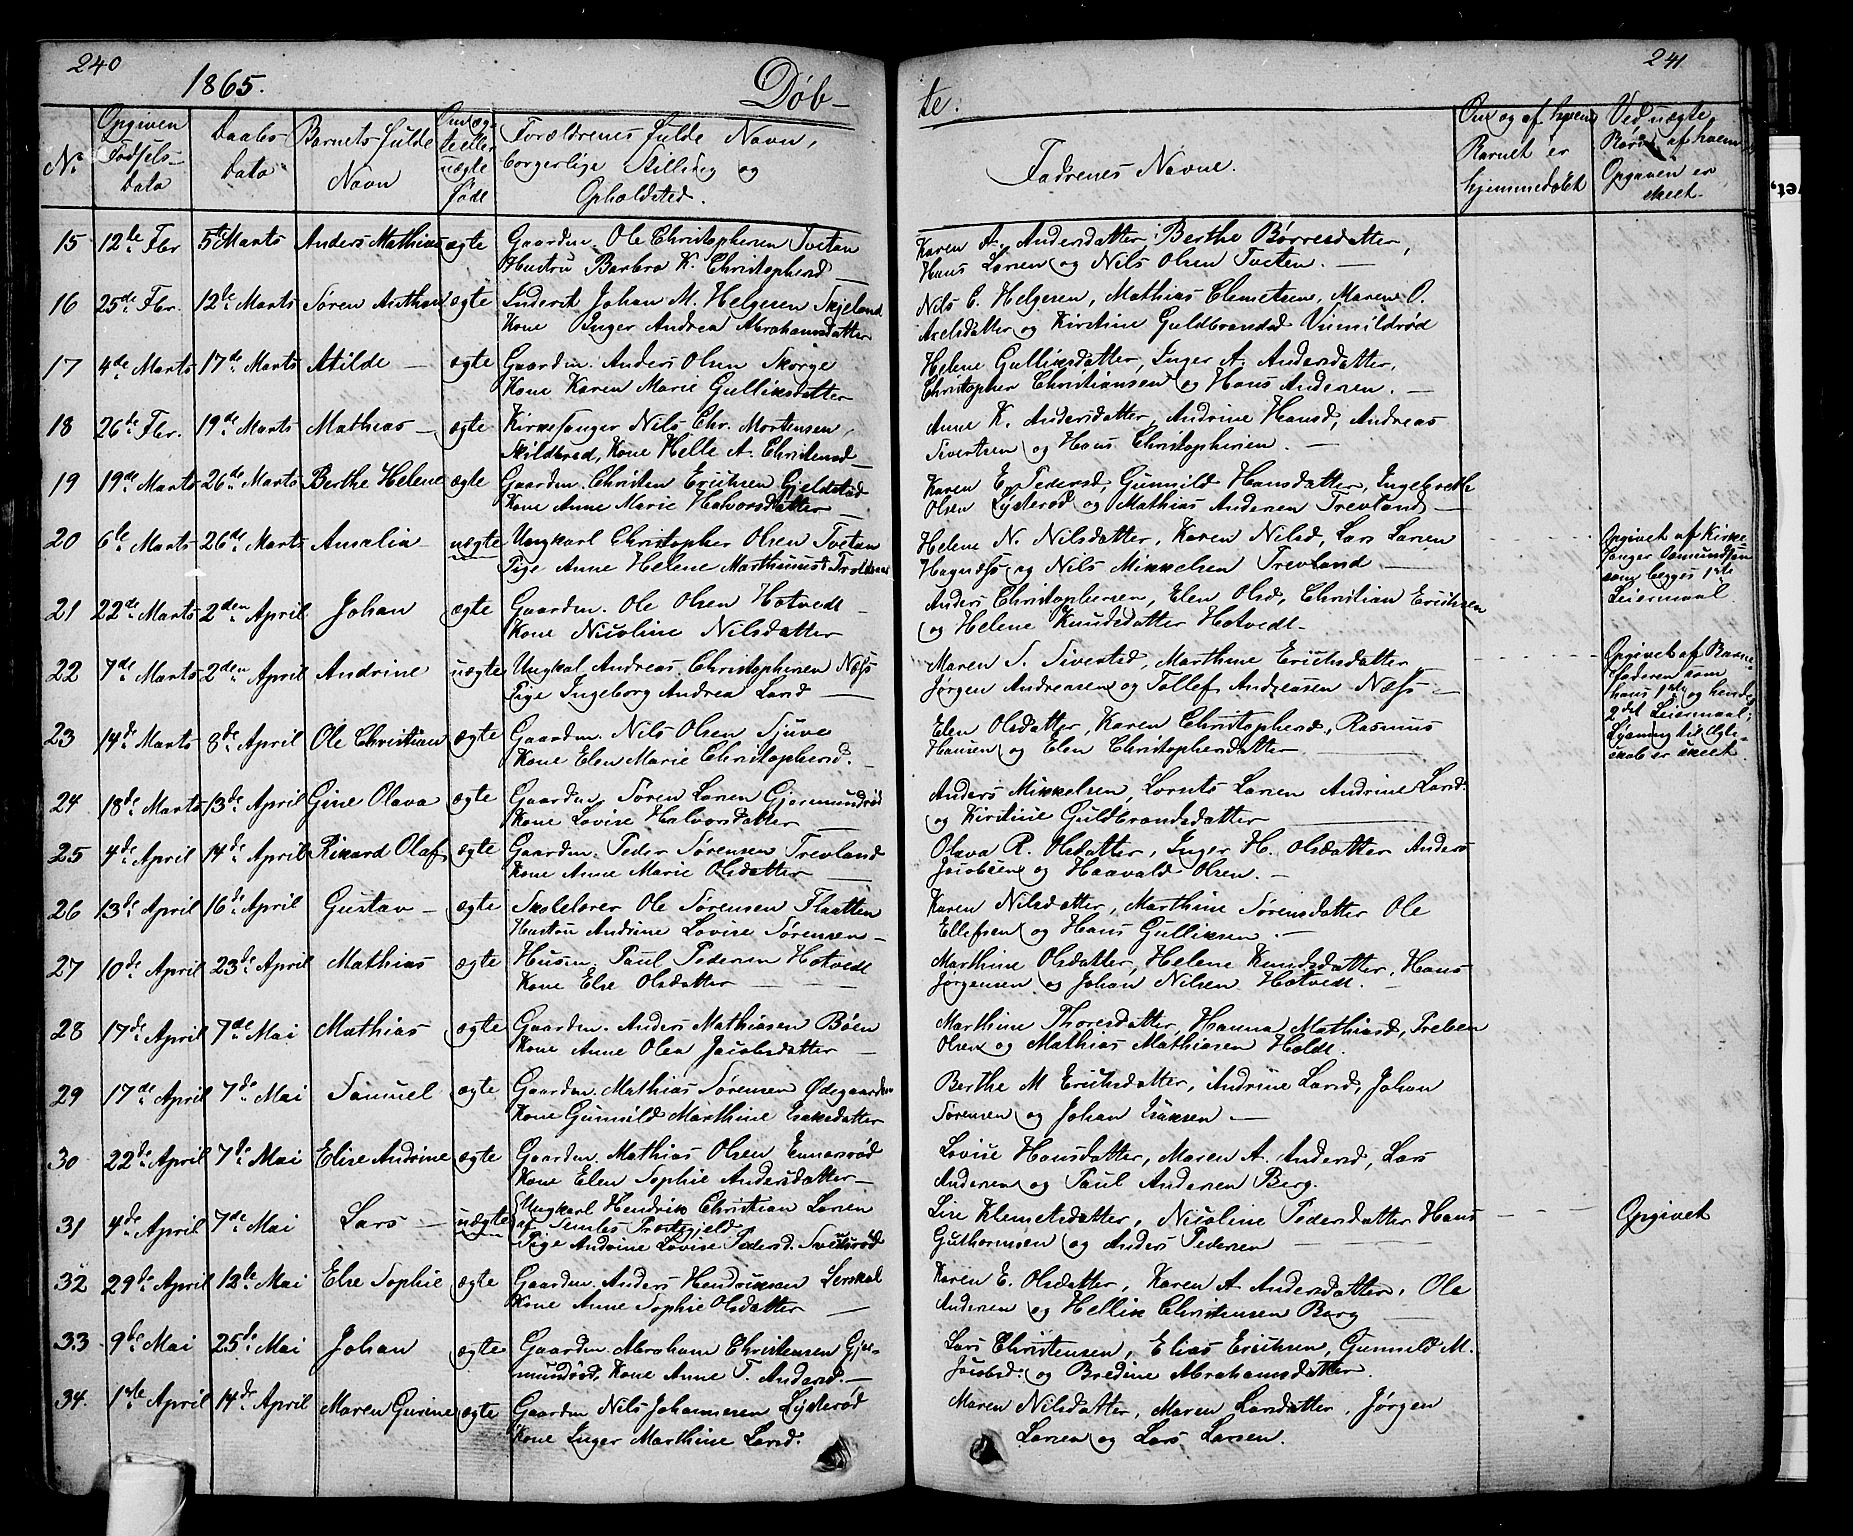 240
1865.
Døb-
No
Opgiven Fødsels- Dato
Daabs Dato
Barnets Fulde Navn
Om ægte eller uægte født
Forældrenes Fulde Navn, borgerlige Stilling og Opholdsted.
15 12te Fbr 5te Marts Anders Mathias ægte Gaardm. Ole Christophersen Tvetan
Hustru Barbro K. Christophersd —
16 25de Fbr. 12te Marts Søren Anthon ægte Inderst Johan M. Helgesen Skjeland
Kone Inger Andrea Abrahamsdatter
17 4de Marts 17de Marts Atilde — ægte Gaardm. Anders Olsen Skorge
Kone Karen Marie Gulliksdatter
18 26de Fbr. 19de Marts Mathias — ægte Kirkesanger Nils Chr. Mortensen
Skildbred, Kone Helle A. Christensd —
19 19de Marts 26de Marts Berthe Helene ægte Gaardm. Christen Erichsen Gjeldstad
Kone Anne Marie Halvorsdatter —
20 6te Marts 26de Marts Amalia uægte Ungkarl Christopher Olsen Tvetan
Pige Anne Helene Marthinusd
21 22de Marts 2den April Johan ægte Gaardm. Ole Olsen Hotvedt —
Kone Nicoline Nilsdatter
22 7de Marts 2den April Andrine uægte Ungkal Andreas Christophersen Næss
Pige Ingeborg Andrea Larsd —
23 14de Marts 8de April Ole Christian ægte Gaardm. Nils Olsen Sjuve
Kone Elen Marie Christophersd. —
24 18de Marts 13de April Gine Olava ægte Gaardm. Søren Larsen Gjermundrød
Kone Lovise Halvorsdatter —
25 4de April 14de April Rikard Olaf ægte Gaardm. Peder Sørensen Trevland
Kone Anne Marie Olsdatter —
26 13de April 16de April Gustav — ægte Skolelærer Ole Sørensen Flaatten
Hustru Andrine Lovise Sørensen —
27 10de April 23de April Mathias ægte Husm. Paul Pedersen Hotvedt
Kone Else Olsdatter —
28 17de April 7de Mai Mathias ægte Gaardm. Anders Mathiasen Bøen
Kone Anne Olea Jacobsdatter —
29 17de April 7de Mai Samuel ægte Gaardm. Mathias Sørensen Ødegaarden
Kone Gunnild Marthine Isaksdatter
30 22de April 7de Mai Elise Andrine ægte Gaardm. Mathias Olsen Ennarsrød
Kone Elen Sophie Andersdatter —
31 4de April 7de Mai Lars — uægte Ungkarl Hendrik Christian Larsen
af Semles Præstegjeld
Pige Andrine Lovise Pedersd.
32 29de April 12te Mai Else Sophie ægte Gaardm. Anders Hendriksen Lerskal
Kone Anne Sophie Olsdatter —
33 9de Mai 25de Mai Johan ægte Gaardm. Abraham Christensen Gjer-
mundrød, Kone Anne T. Andersd. —
34. 1ste April 14de April Maren Gurine ægte Gaardm Nils Johannesen Lysterød
Kone Inger Marthine Larsd.
241
te.
Fadrenes Navne.
Om og af hvem Barnet er hjemmedøbt
Ved uægte Børn, af hvem Opgaven er skeet.
Karen A. Andersdatter, Berthe Børresdatter,
Hans Larsen og Nils Olsen Tveten. —
Nils C. Helgesen, Mathias Clemetsen, Maren O.
Axelsdatter og Kirstine Guldbrandsd Vimildrød
Helene Gulliksdatter, Inger A. Andersdatter,
Christopher Christiansen og Hans Andersen. —
Anne K. Andersdatter, Andrine Hansd, Andreas
Sivertsen og Hans Christophersen. —
Karen E. Pedersd, Gunnild Hansdatter, Ingebreth
Olsen Lysterød og Mathias Andersen Trevland —
Helene N. Nilsdatter, Karen Nilsd, Lars Larsen
Hagnæss og Nils Mikkelsen Trevland —
Opgivet af Kirke-
sanger Osmundsen
som begges 1ste
Leiermaal.
Anders Christophersen, Elen Olsd, Christian Erichsen
og Helene Knudsdatter Hotvedt.
Maren S. Sivertsd, Marthine Erichsdatter
Jørgen Andreasen og Tollef Andreasen Næss —
Opgivet af Barne-
faderen som
hans 1ste og hendes
2det Leiermaal;
Lysning til Ægte-
skab er skeet.
Elen Olsdatter, Karen Christophersd, Rasmus
Hansen og Elen Christophersdatter —
Anders Mikkelsen, Lornts Larsen Andrine Larsd.
og Kirstine Guldbrandsdatter —
Olava R. Olsdatter, Inger H. Olsdatter Anders
Jacobsen og Haavald Olsen. —
Karen Nilsdatter, Marthine Sørensdatter Ole
Ellefsen og Hans Gulliksen. —
Marthine Olsdatter, Helene Knudsdatter, Hans
Jørgensen og Johan Nilsen Hotvedt. —
Marthine Thoresdatter, Hanna Mathiasd, Preben
Olsen og Mathias Mathiasen Holdt.
Berthe M Erichsdatter, Andrine Larsd, Johan
Sørensen og Johan Isaksen —
Lovise Hansdatter, Maren A. Andersd, Lars
Andersen og Paul Andersen Berg.
Lise Klemetsdatter, Nicoline Pedersdatter Hans
Guthormsen og Anders Pedersen —
Opgivet
Karen E. Olsdatter, Karen A. Andersdatter, Ole
Andersen og Hellik Christensen Berg —
Lars Christensen, Elias Erichsen, Gunnild M.
Jacobsd. og Bredine Abrahamsdatter.
Maren Nilsdatter, Maren Larsdatter, Jørgen
Larsen og Lars Larsen.